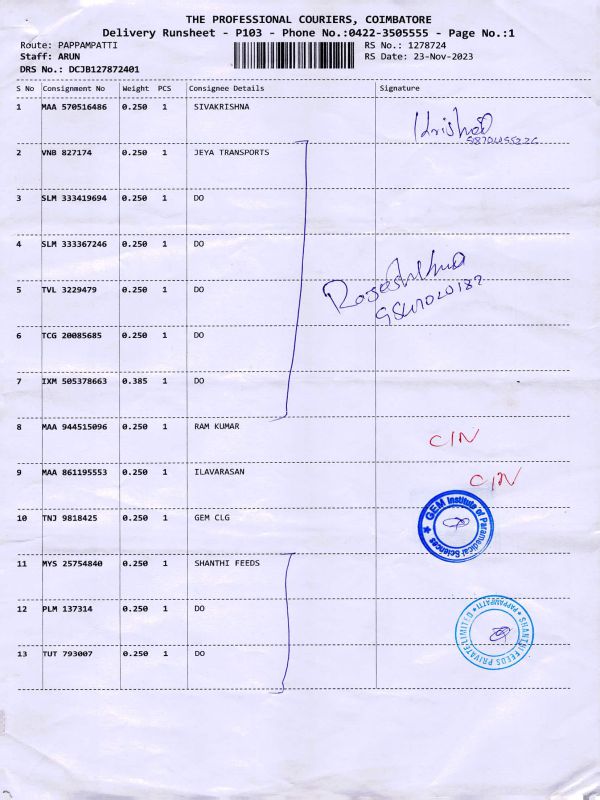 THE PROFESSIONAL COURIERS, COIMBATORE
Delivery Runsheet - P103 - Phone No.:0422-3505555 - Page No.:1
Route: PAPPAMPATTI RS No.: 1278724
Staff: ARUN RS Date: 23-Nov-2023
DRS No.: DCJB127872401
S No Consignment No Weight PCS Consignee Details Signature
1 MAA 570516486 0.250 1 SIVAKRISHNA
2 VNB 827174 0.250 1 JEYA TRANSPORTS
3 SLM 333419694 0.250 1 DO
4 SLM 333367246 0.250 1 DO
5 TVL 3229479 0.250 1 DO
6 TCG 20085685 0.250 1 DO
7 IXM 505378663 0.385 1 DO
8 MAA 944515096 0.250 1 RAM KUMAR
C/N
9 MAA 861195553 0.250 1 ILAVARASAN
C/N
10 TNJ 9818425 0.250 1 GEM CLG
GEM Institute of Paramedical Sciences
11 MYS 25754840 0.250 1 SHANTHI FEEDS
12 PLM 137314 0.250 1 DO
SHANTHI FEEDS PRIVATE LIMITED PAPPAMPATTI
13 TUT 793007 0.250 1 DO